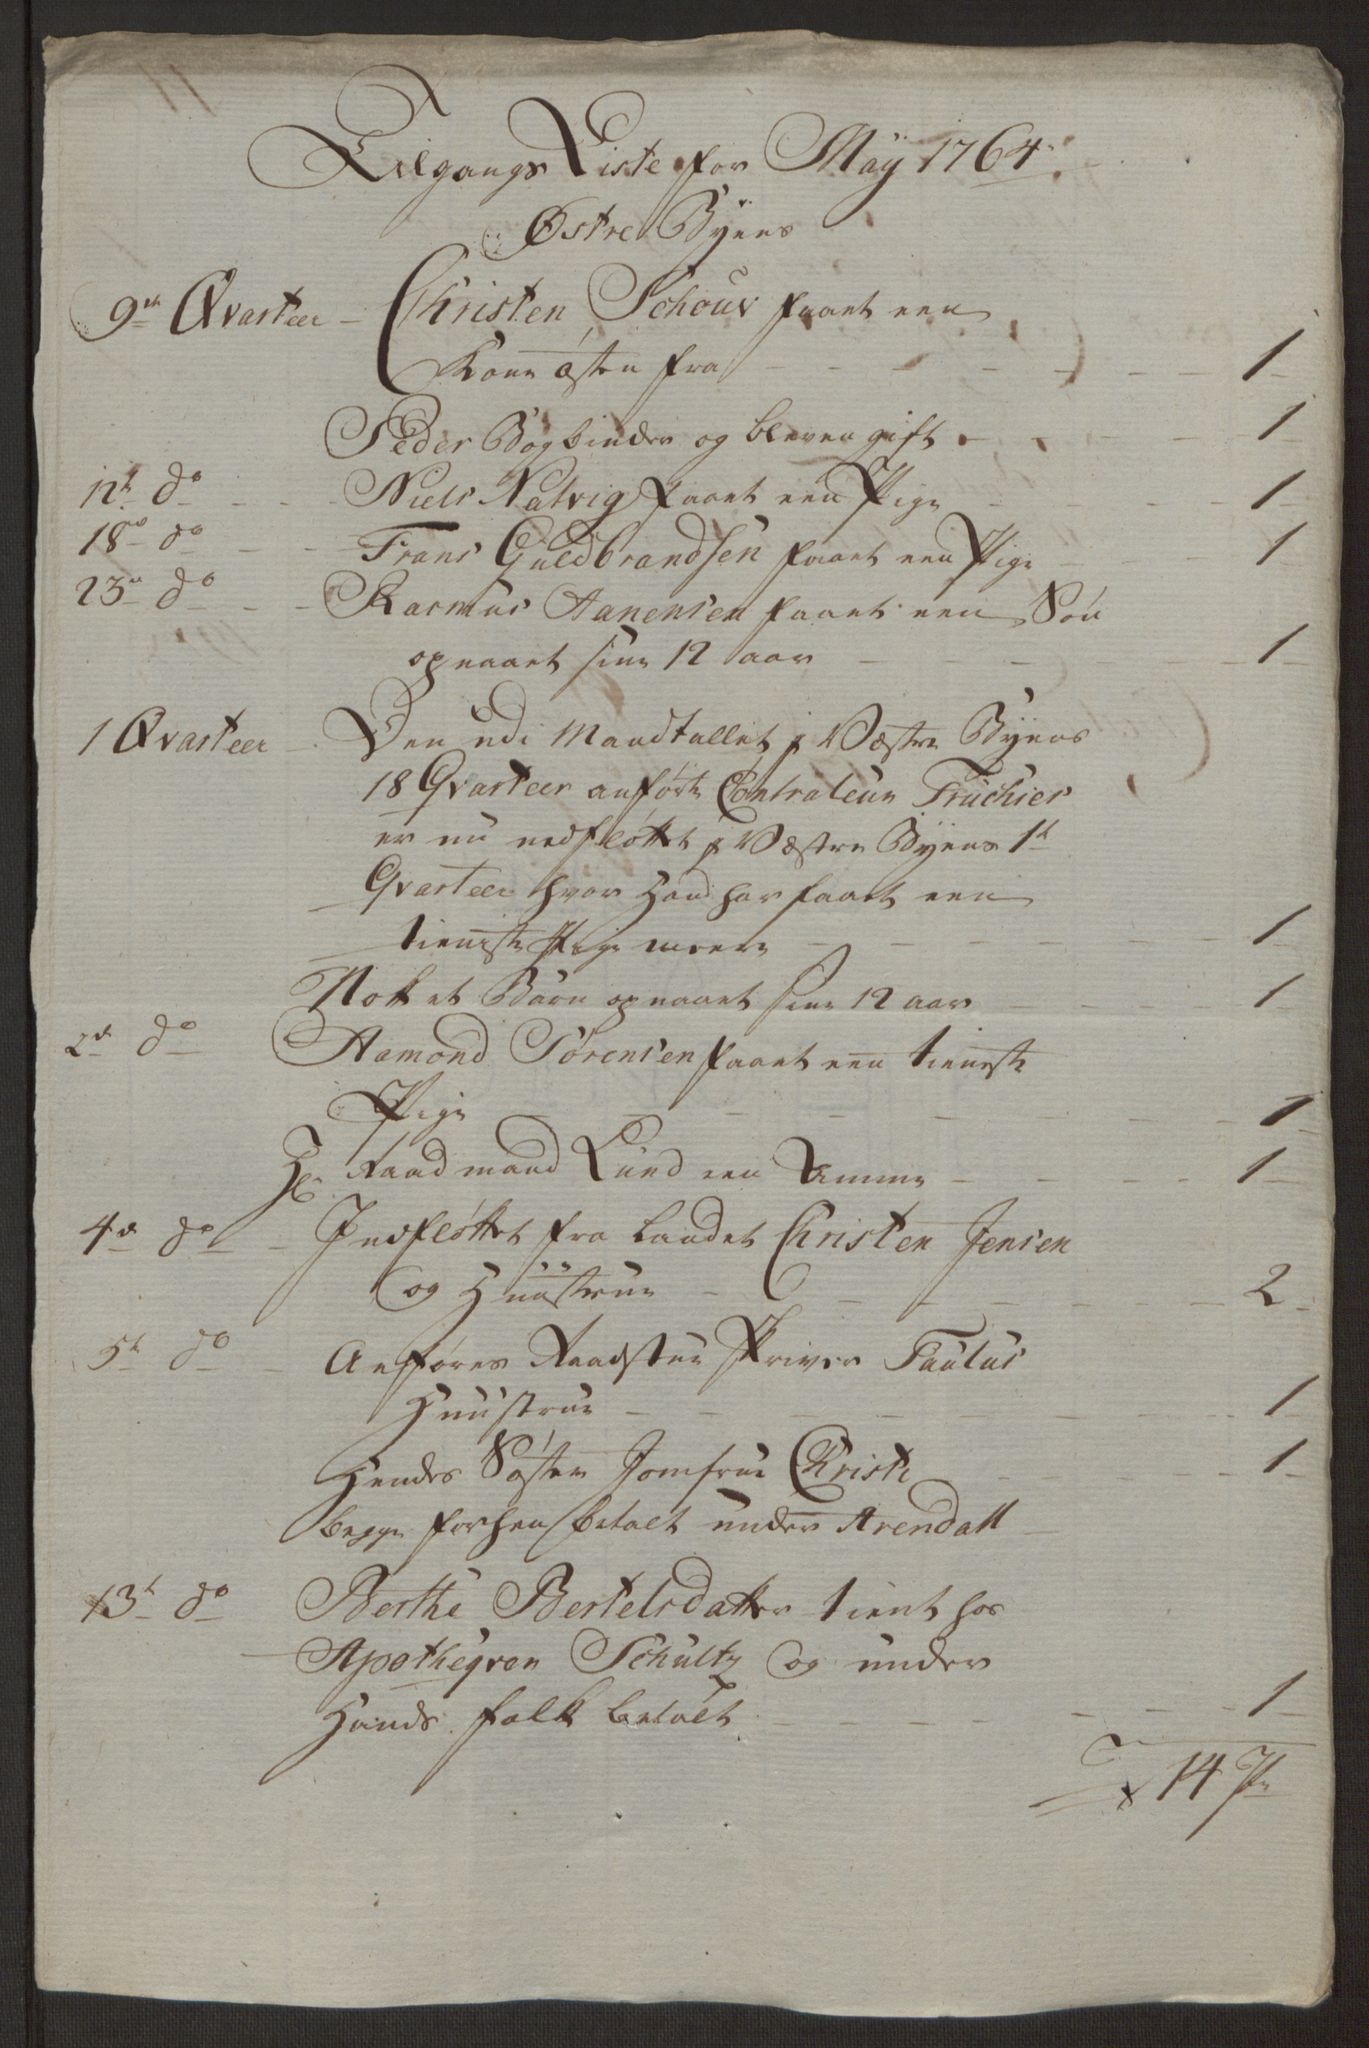 Tilgangs Liste for Maÿ 1764
Østre Byens
9de Qvarteer - Christen Schouv faaet een
Kone østen fra - 1
Peder Bogbinder og bleven gift - 1
12te do - Niels Natvig faaet een Pige - 1
18de do - Frans Guldbrandsen faaet een Pige - 1
23de do - Rasmus Aanensen faaet een Søn
opnaaet sine 12 aar - 1
1 Qvarteer - Den udi Mandtallet j Westre Byens
18 Qvarteer anførte Controleur Truchier
er nu nedfløttet j Westre Byens 1te
Qvarteer hvor Hand har faaet een
tieniste Pige meere - 1
Nok et Barn opnaaet sine 12 aar - 1
2de do Aamond Sørensen faaet een tieneste
Pige - 1
Hr. Raadmand Lund een Amme - 1
4de do - Indfløttet fra Landet Christen Jensen
og Huustrue - 2
5te do - Anføres Raadstue Skriver Paulus
Huustrue - 1
Hendes Søster Jomfrue Christi - 1
begge forhen betalt under Arendall
13te do Berthe Bertelsdatter tient hos
Apotheqven Schultz og under
Hands folk betalt - 1
14 Pr